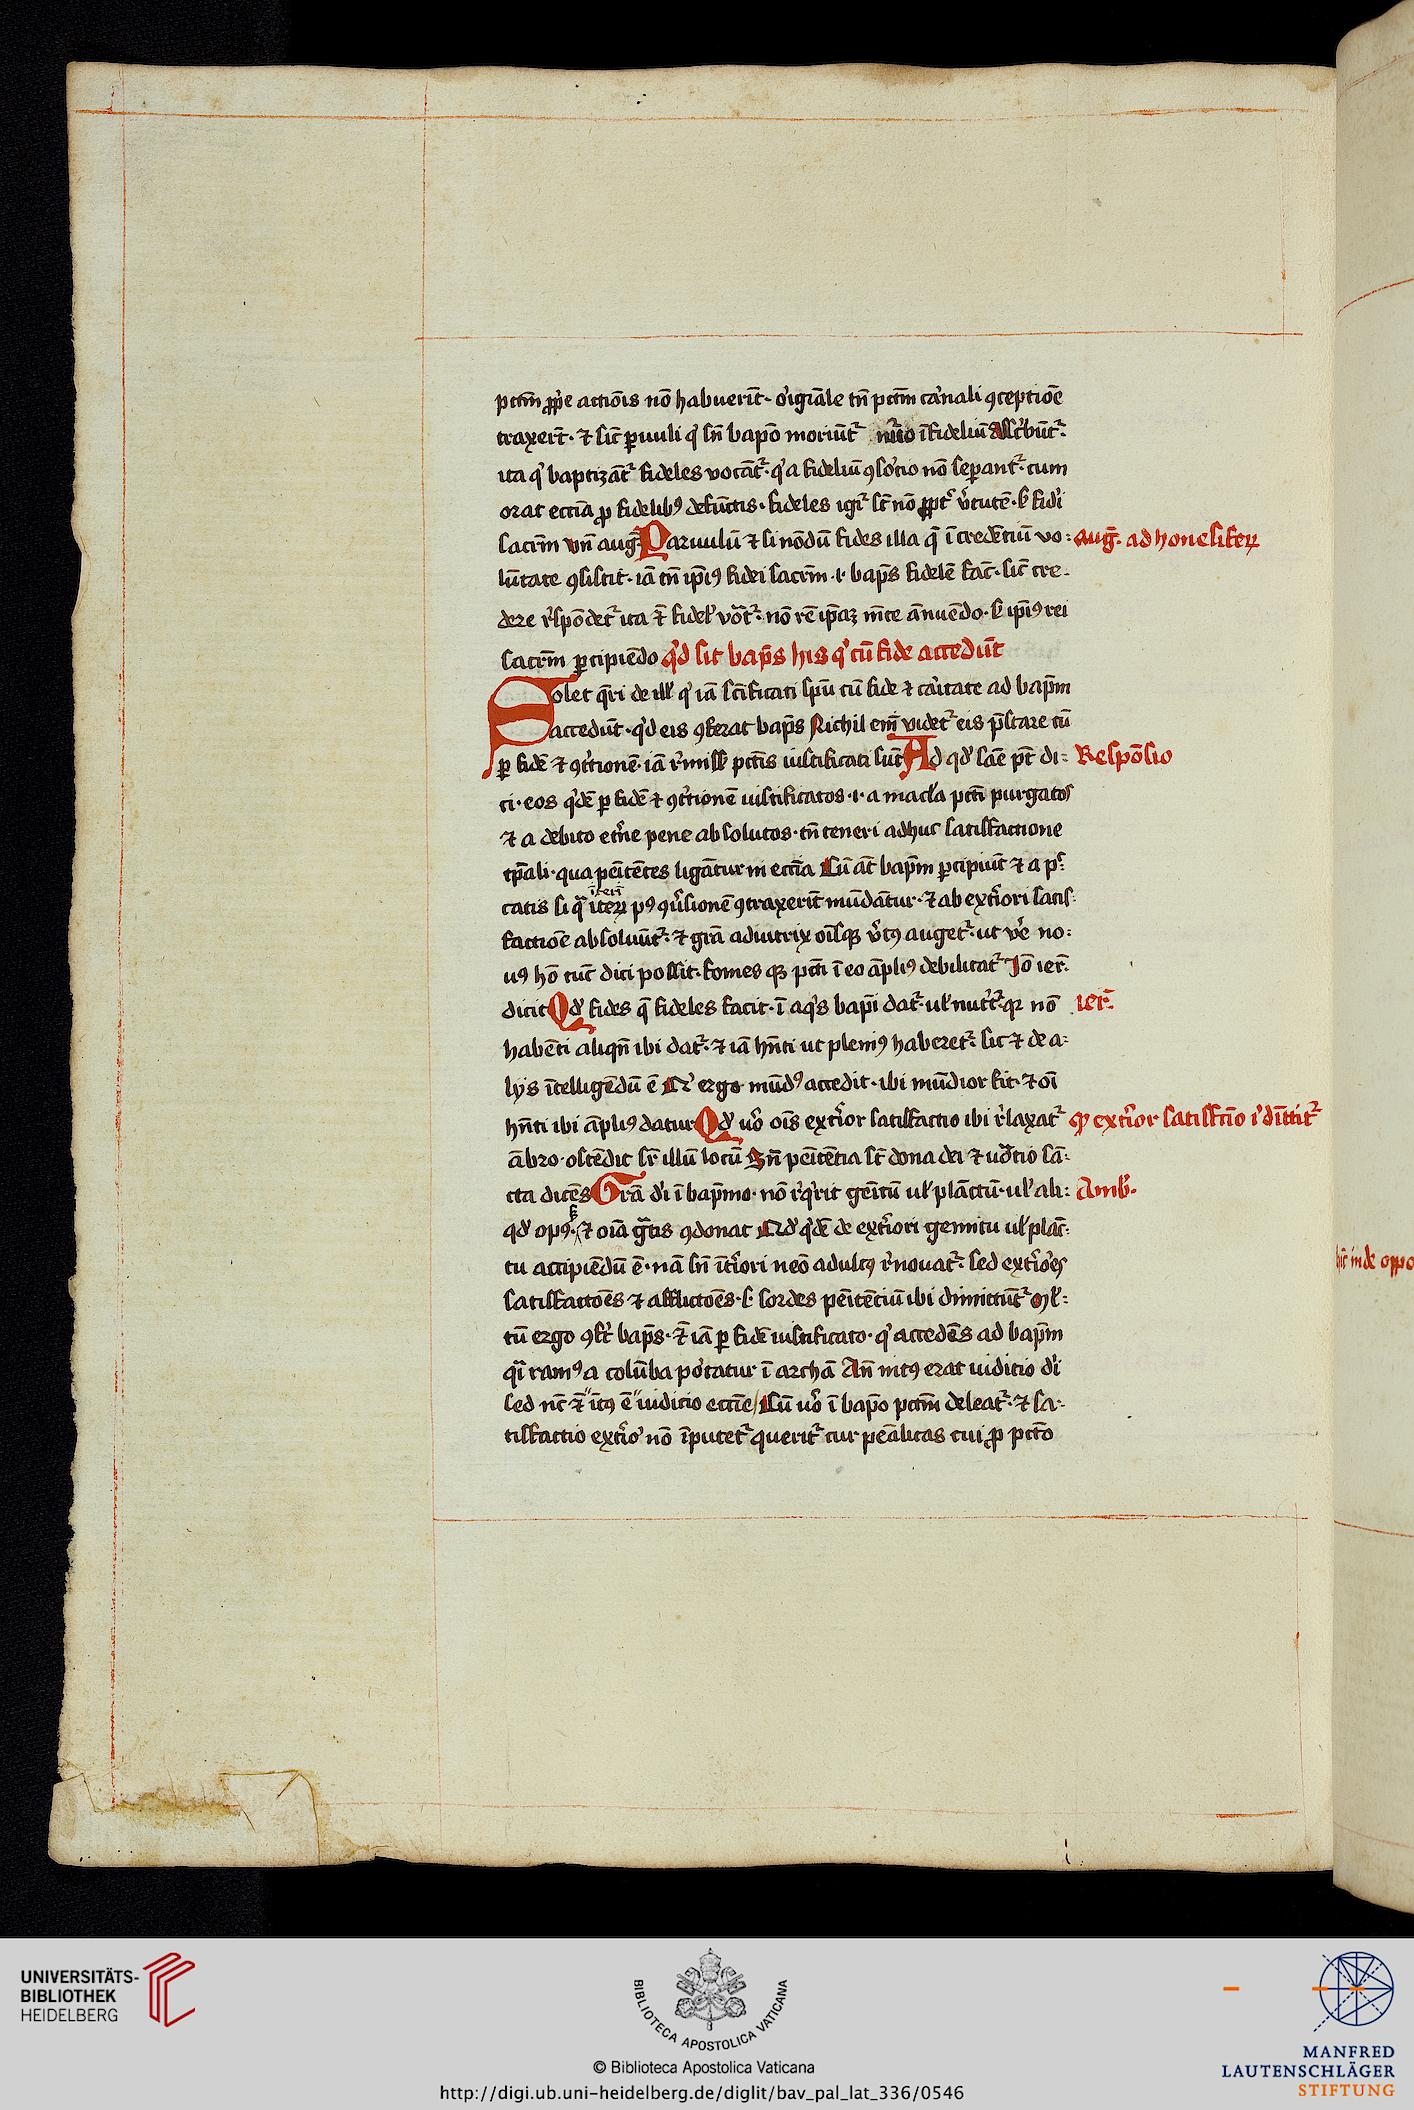 pctm̄ ꝓp̄e actiōis nō habuerīt· oꝰigiāle tn̄ pctm̄ caꝰnali ꝯceptiōe
traxerīt· ⁊ sic̄ ꝑuuli qͥ sn̄ bapō moriūt᷑ nūo īfideliū asscͥbūt᷑·
ita qͥ baptizāt᷑ fideles vocāt᷑· qͥ a fideliū ꝯsoꝰtio nō seꝑant᷑· cum
orat eccīa ꝓ fidelibꝰ defūctis· fideles igͥ᷑ st̄ nō ꝓpt᷑ vͥtutē· s͛ fidͥi
sacrm̄ vn̄ aug᷑ Paruulū ⁊ si nōdū fides illa q̄ ī credētiū vo:
aug᷑· ad honesifeꝝ
lūtate ꝯsistit· iā tn̄ ip̄iꝰ fidei sacrm̄ ·i· bap̄s fidelē fac̄· sic̄ cre-
dere rͥspōdet᷑ ita ⁊̄ fidel͛ vōt᷑· nō rē ip̄aꝫ mēte ānuēdo· s͛ ip̄iꝰ rei
sacrm̄ ꝑcipiēdo qͥd sit bap̄s his qͥ cū fide accedūt
Solet q̄ri de ill͛ qͥ iā sc̄ificati sp̄u cū fide ⁊ caͥitate ad bap̄m
accedūt· qͥd eis ꝯferat bap̄s Nichil em̄ videt᷑ eis p̄stare cū
ꝑ fidē ⁊ ꝯtͥtionē· iā rͥmiss͛ pctīs iustificati sūt Ad qd͛ sāe pt̄ di:
Respōsio
ci· eos qͥdē ꝑ fidē ⁊ ꝯtͥtionē iustificatos ·i· a macl͛a pcti purgatos
⁊ a debito et̄ne pene absolutos· tn̄ teneri adhuc satisfactione
tp̄ali· qua peītētes ligātur in eccīa Cū āt bap̄m ꝑcipiūt ⁊ a pͨ-
catis si q̄ iteꝝ pꝰ ꝯuͥsionē ꝯtraxerīt mūdātur· ⁊ ab extͥiori satis-
factiōe absoluūt᷑· ⁊ grā adiutrix oīsqꝫ vͥtꝰ auget᷑· ut vͤe no:
uꝰ hō tūc dici possit· fomes qꝫ pcti ī eo āpliꝰ debilitat᷑ Iō ier᷑·
dicit Qd͛ fides q̄ fideles facit· ī aqͥs bapī dat᷑· ul͛ nutͥt᷑· qꝛ nō
ier᷑·
habēti aliqn̄ ibi dat᷑· ⁊ iā hn̄ti ut pleniꝰ haberet᷑· sic ⁊ de a-
lys ītelligēdū ē Qͥ ergo mūdꝰ accedit· ibi mūdior fit· ⁊ oī
hn̄ti ibi āpliꝰ datur Qd͛ uͦ oīs extͥior satisfactio ibi rͥlaxat᷑
ꝙ extͥior satisfc̄io iͥ dīttit᷑
ābro· ostēdit sr̄ illū locū Sn̄ peītētia st̄ dona dei ⁊ uocͣtio sā-
cta dicēs Grā dͥi ī bap̄mo· nō rͥqͥrit gēitū ul͛ plāctū· ul͛ ali:
Amb᷑·
qd͛ opꝰ· ⁊ oīa gͣtis ꝯdonat Qd͛ qͥdē de extͥiori gemitu ul͛ plāc-
tu accipiēdū ē· nā sn̄ ītͥiori neō adultꝰ rͥnouat᷑· sed extͥioꝰes
satisfactōes ⁊ afflictōes· s͛ sordes peītētiū ibi dimittūt᷑ Ml͛:
tū ergo ꝯft͛ bap̄s· ⁊̄ iā ꝑ fidē iustificato· qͥ accedēs ad bap̄m
qͣi ramꝰ a colūba poꝰtatur ī archā An̄ intꝰ erat iuditio dͥi
sed nc̄ ⁊̄ ītꝰ ē iuditio eccīe Cū uͦ ī bapō pctm̄ deleat᷑· ⁊ sa-
tisfactio extͥioꝰ nō īputet᷑ querit᷑ cur peālitas cui ꝓ pctō
hic̄ inde oppo
UNIVERSITÄTS-
BIBLIOTHEK
HEIDELBERG
BIBLIOTECA APOSTOLICA VATICANA
© Biblioteca Apostolica Vaticana
http://digi.ub.uni-heidelberg.de/diglit/bav_pal_lat_336/0546
MANFRED
LAUTENSCHLÄGER
STIFTUNG